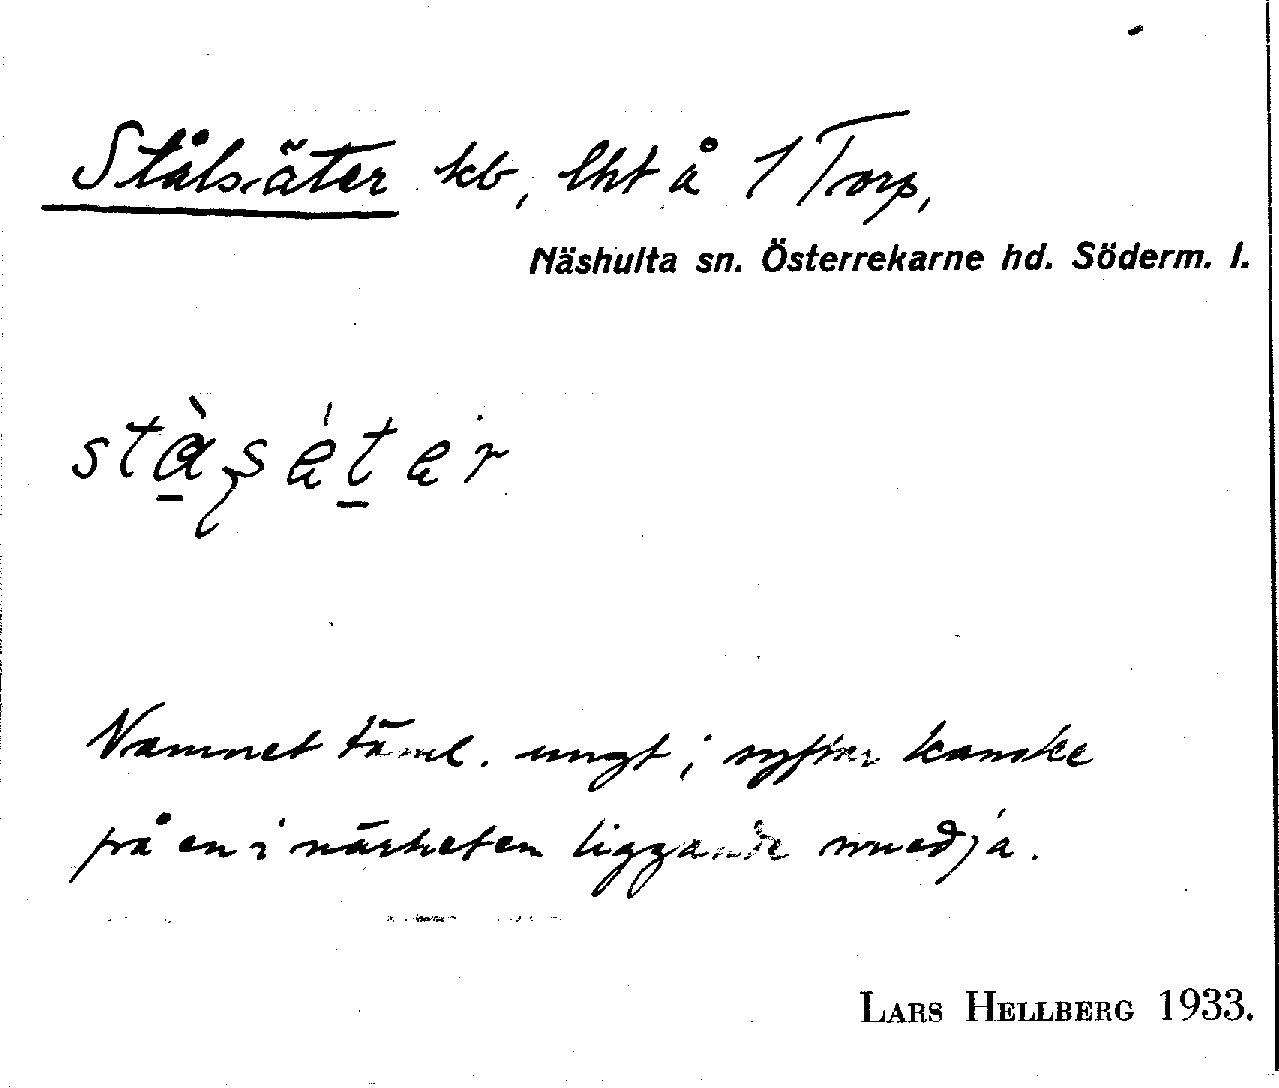 Stålsäter kb, lht å 1 Torp,
Näshulta sn. Österrekarne hd. Söderm. l.
Namnet täml. ungt; syftar kanske
på en i närheten liggande smedja.
LARS HELLBERG 1933.